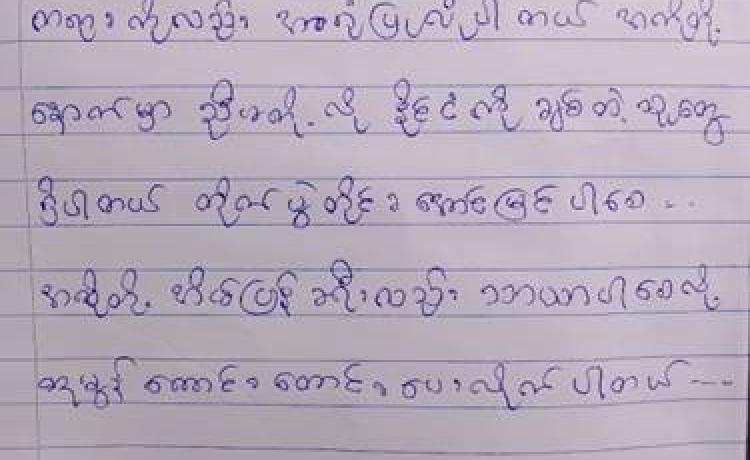 တရားကိုလည်း အားလုံးမြုပ်လို့ပါတယ် အကိုတို့
နောက်မှာ ညီမတို့လို နိုင်ငံကို ချစ်တဲ့သူတွေ
ရှိပါတယ် တိုက်ပွဲတိုင်း အောင်မြင်ပါစေ...
အကိုတို့ အိမ်ပြန်ခရီးလည်း သာယာပါစေလို့
ဆုမွန်ကောင်းတောင်းပေးလိုက်ပါတယ်----